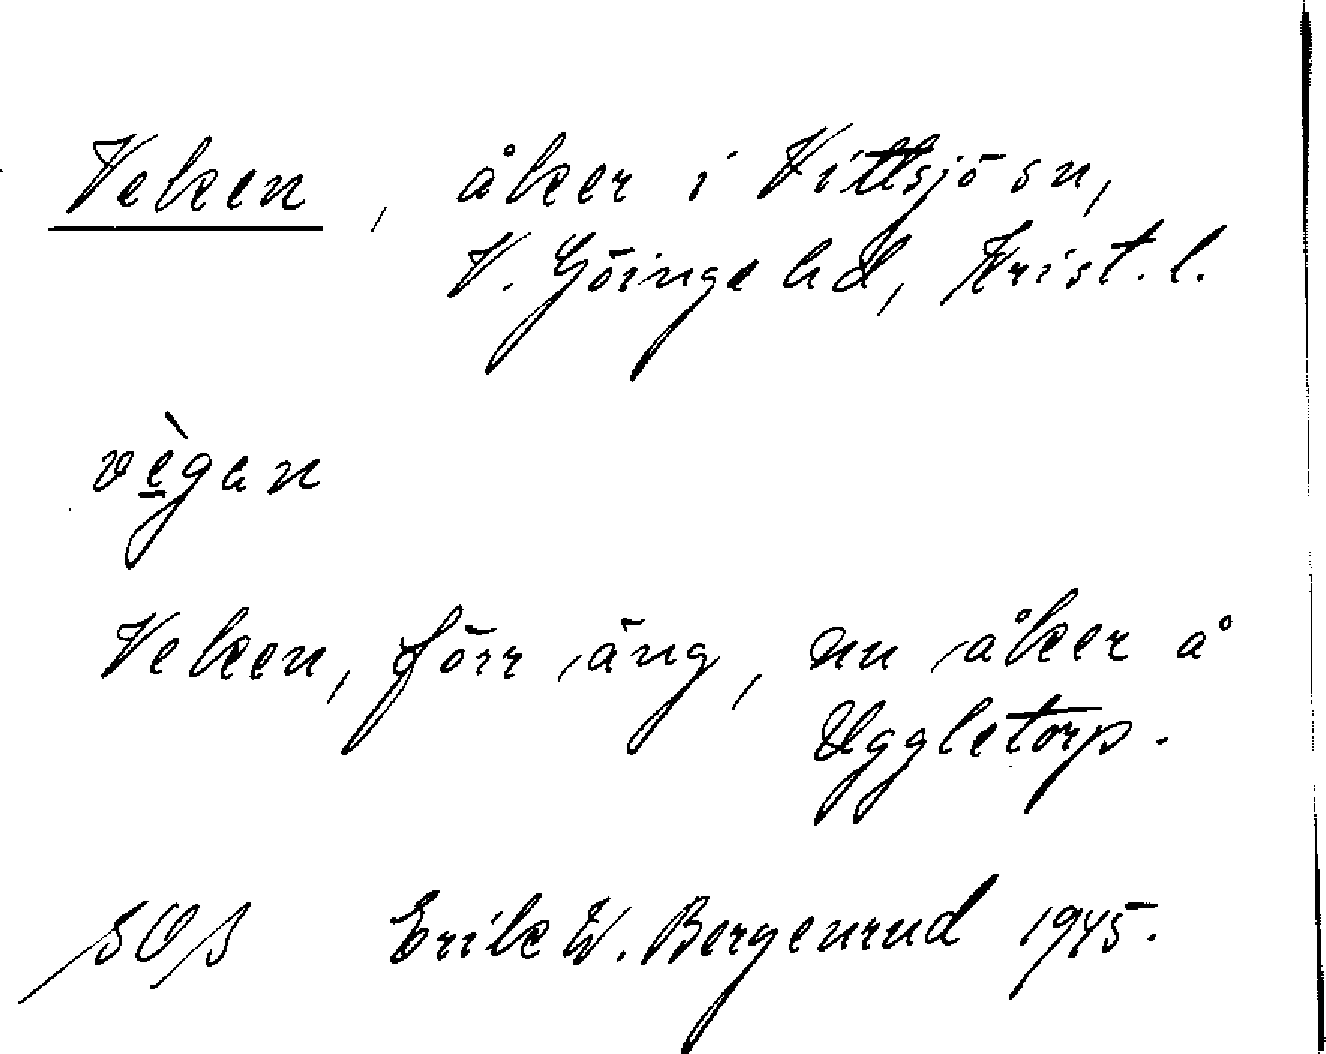 Veken, åker i Vittsjö sn,
V. Göinge hd, Krist. l.
vègan
Veken, förr äng, nu åker å
Uggletorp.
SOS Erik W. Bergenrud 1945.